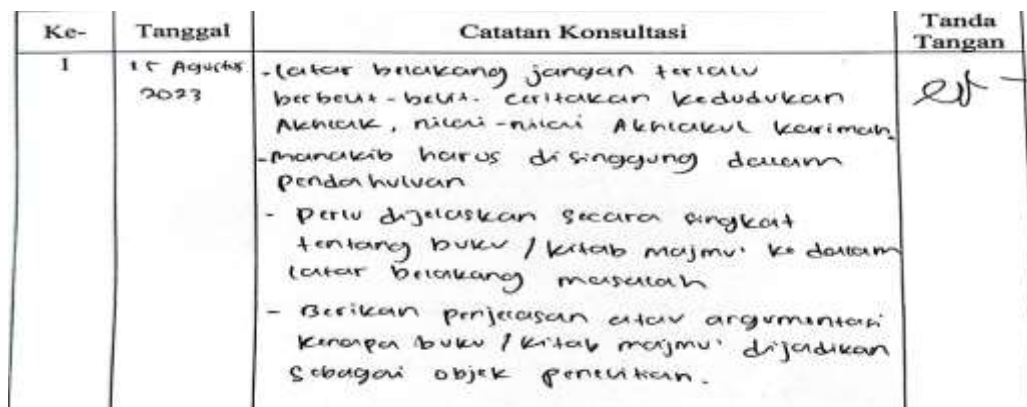 Ke- Tanggal Catatan Konsultasi Tanda Tangan
1 15 Agustus 2023
- latar belakang jangan terlalu
berbelit-belit. ceritakan kedudukan
Akhlak, nilai-nilai Akhlakul karimah.
- manakib harus disinggung dalam
pendahuluan
- Perlu dijelaskan secara singkat
tentang buku / kitab majmu' ke dalam
latar belakang masalah
- Berikan penjelasan atau argumentasi
kenapa buku / kitab majmu' dijadikan
sebagai objek penelitian.